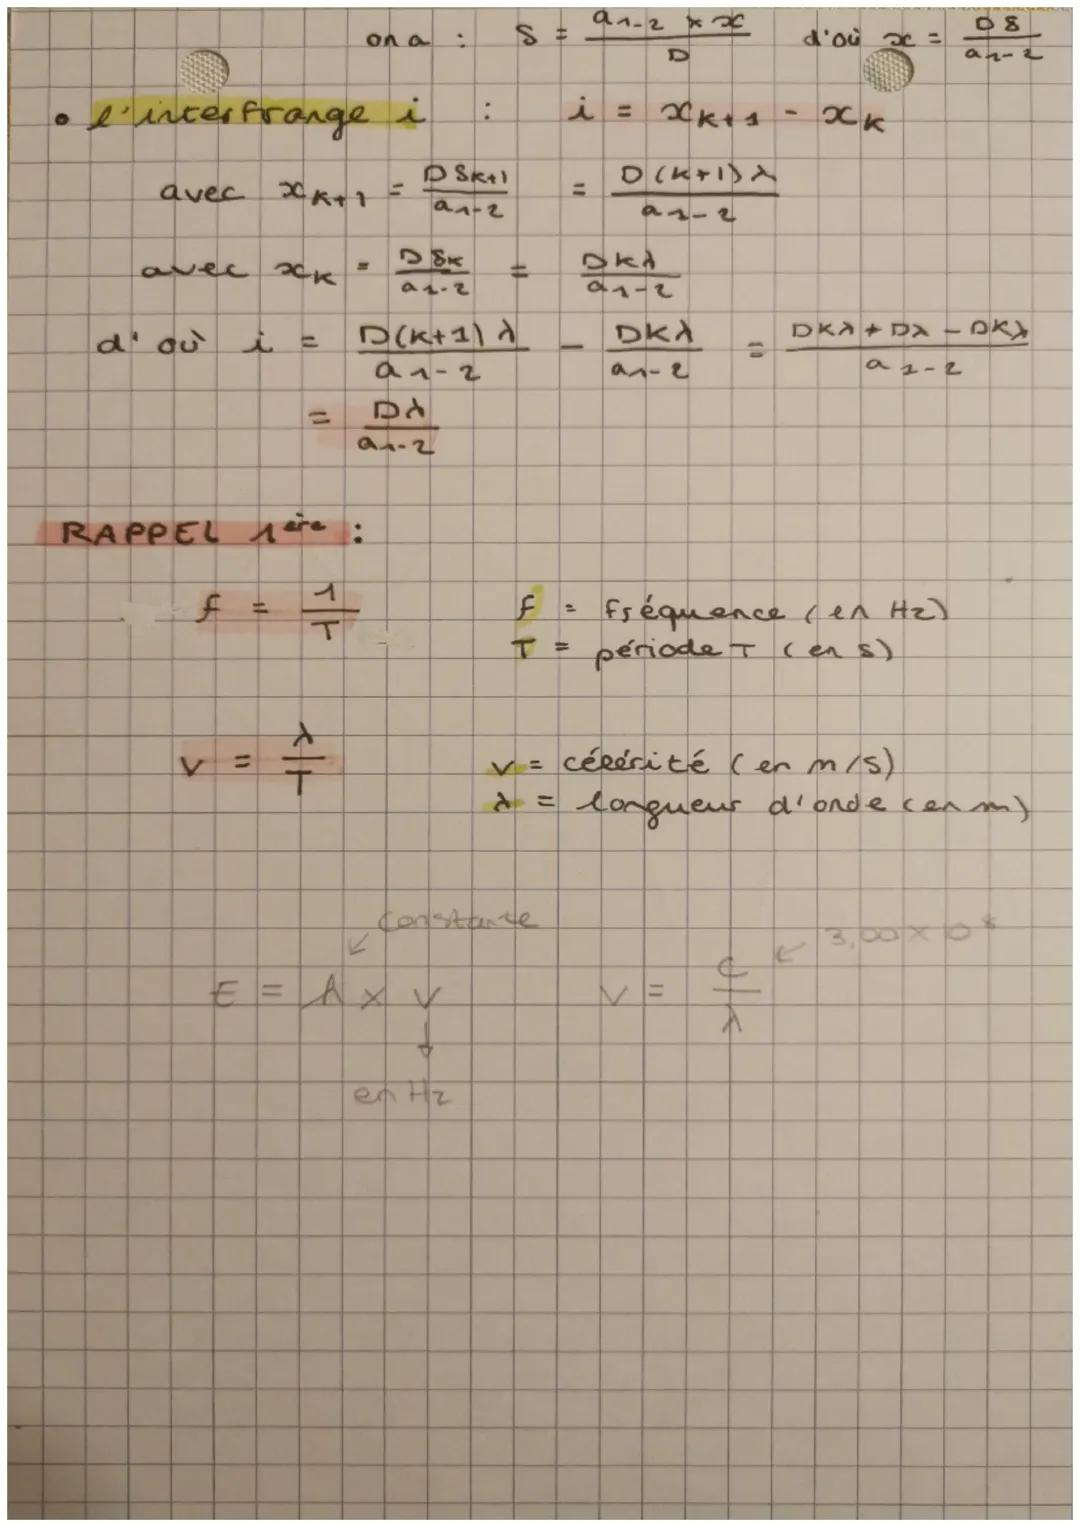 on a : δ = a₁₋₂ × x / D d'où x = Dδ / a₁₋₂
• l'interfrange i : i = xₖ₊₁ - xₖ
avec xₖ₊₁ = Dδₖ₊₁ / a₁₋₂ = D(k+1)λ / a₁₋₂
avec xₖ = Dδₖ / a₁₋₂ = Dkλ / a₁₋₂
d'où i = D(k+1)λ / a₁₋₂ - Dkλ / a₁₋₂ = Dkλ + Dλ - Dkλ / a₁₋₂
= Dλ / a₁₋₂
RAPPEL 1ère :
f = 1 / T f = fréquence (en Hz)
T = période T (en s)
v = λ / T v = célérité (en m/s)
λ = longueur d'onde (en m)
constante
3,00 × 10⁸
E = h × ν ν = c / λ
en Hz